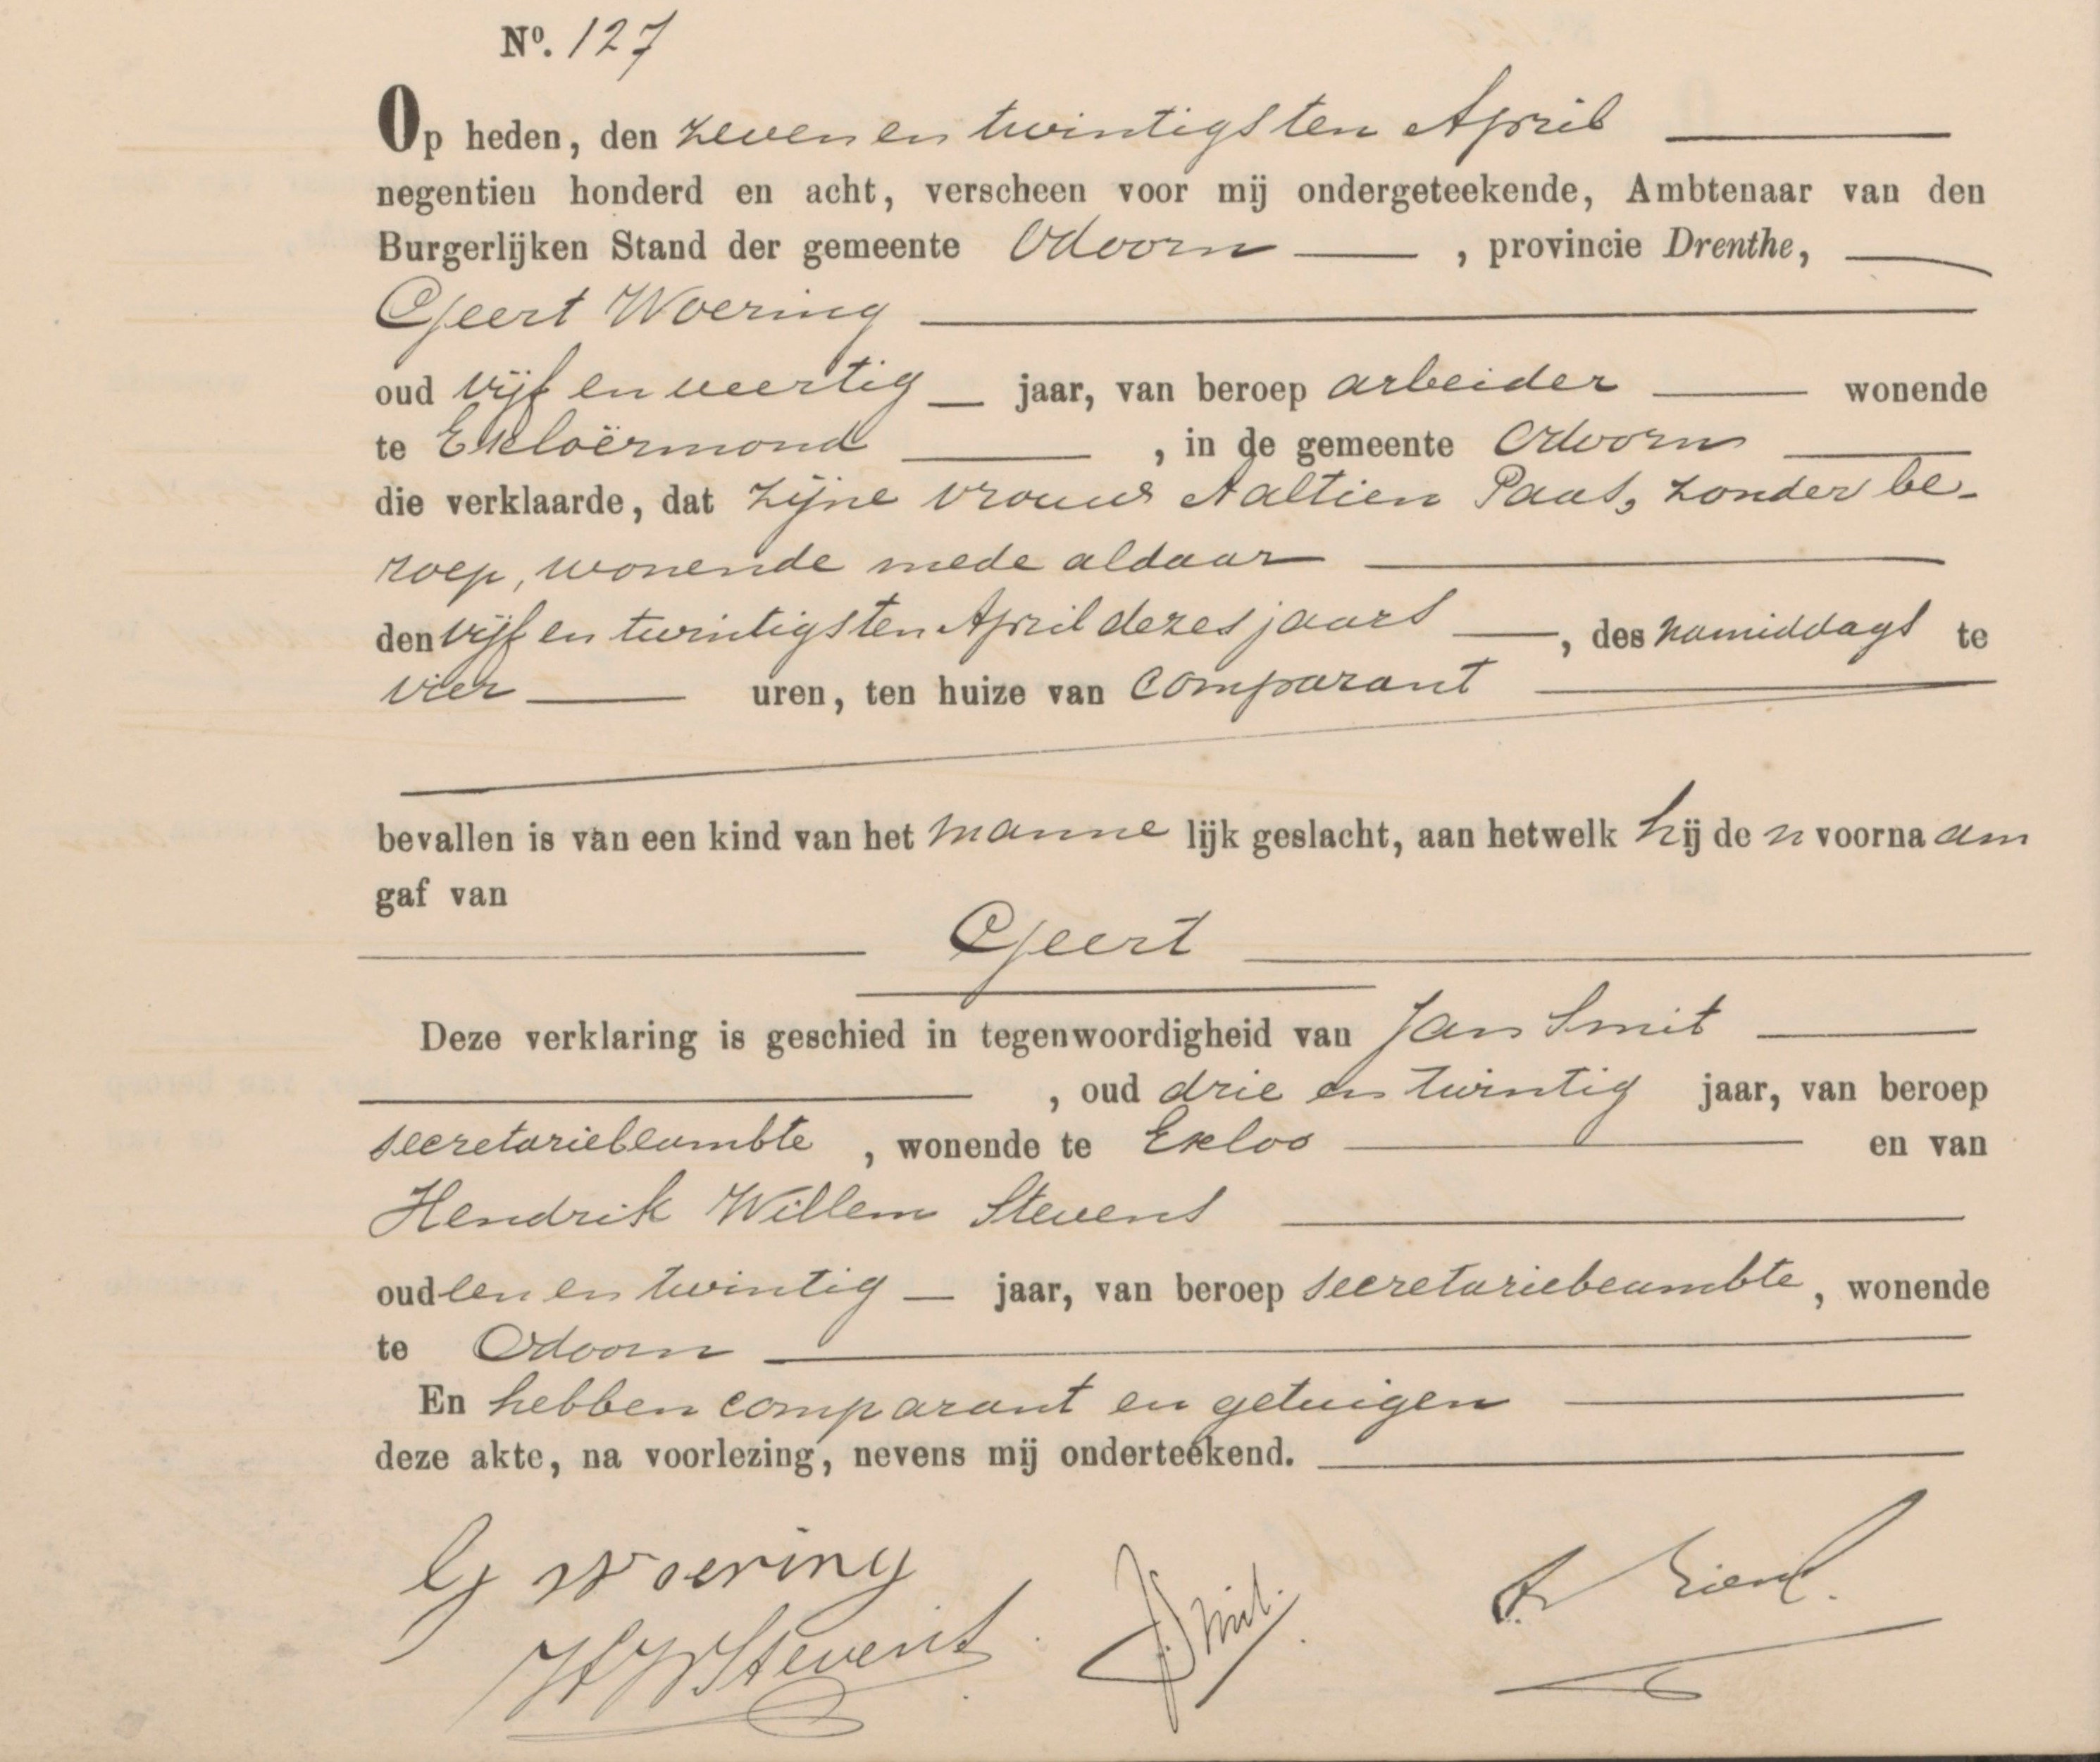 Nº. 127
Op heden, den zeven en twintigsten April
negentien honderd en acht, verscheen voor mij ondergeteekende, Ambtenaar van den
Burgerlijken Stand der gemeente Odoorn, provincie Drenthe,
Geert Woering
oud vijf en veertig jaar, van beroep arbeider wonende
te Exloërmond, in de gemeente Odoorn
die verklaarde, dat zijne vrouw Aaltien Paas, zonder be-
roep, wonende mede aldaar
den vijf en twintigsten April dezes jaars, des namiddags te
vier uren, ten huize van comparant
bevallen is van een kind van het mannelijk geslacht, aan hetwelk hij den voornaam
gaf van
Geert
Deze verklaring is geschied in tegenwoordigheid van Jan Smit
, oud drie en twintig jaar, van beroep
secretariebeambte, wonende te Exloo en van
Hendrik Willem Stevens
oud een en twintig jaar, van beroep secretariebeambte, wonende
te Odoorn
En hebben comparant en getuigen
deze akte, na voorlezing, nevens mij onderteekend.
G Woering
HWStevens
J. Smit.